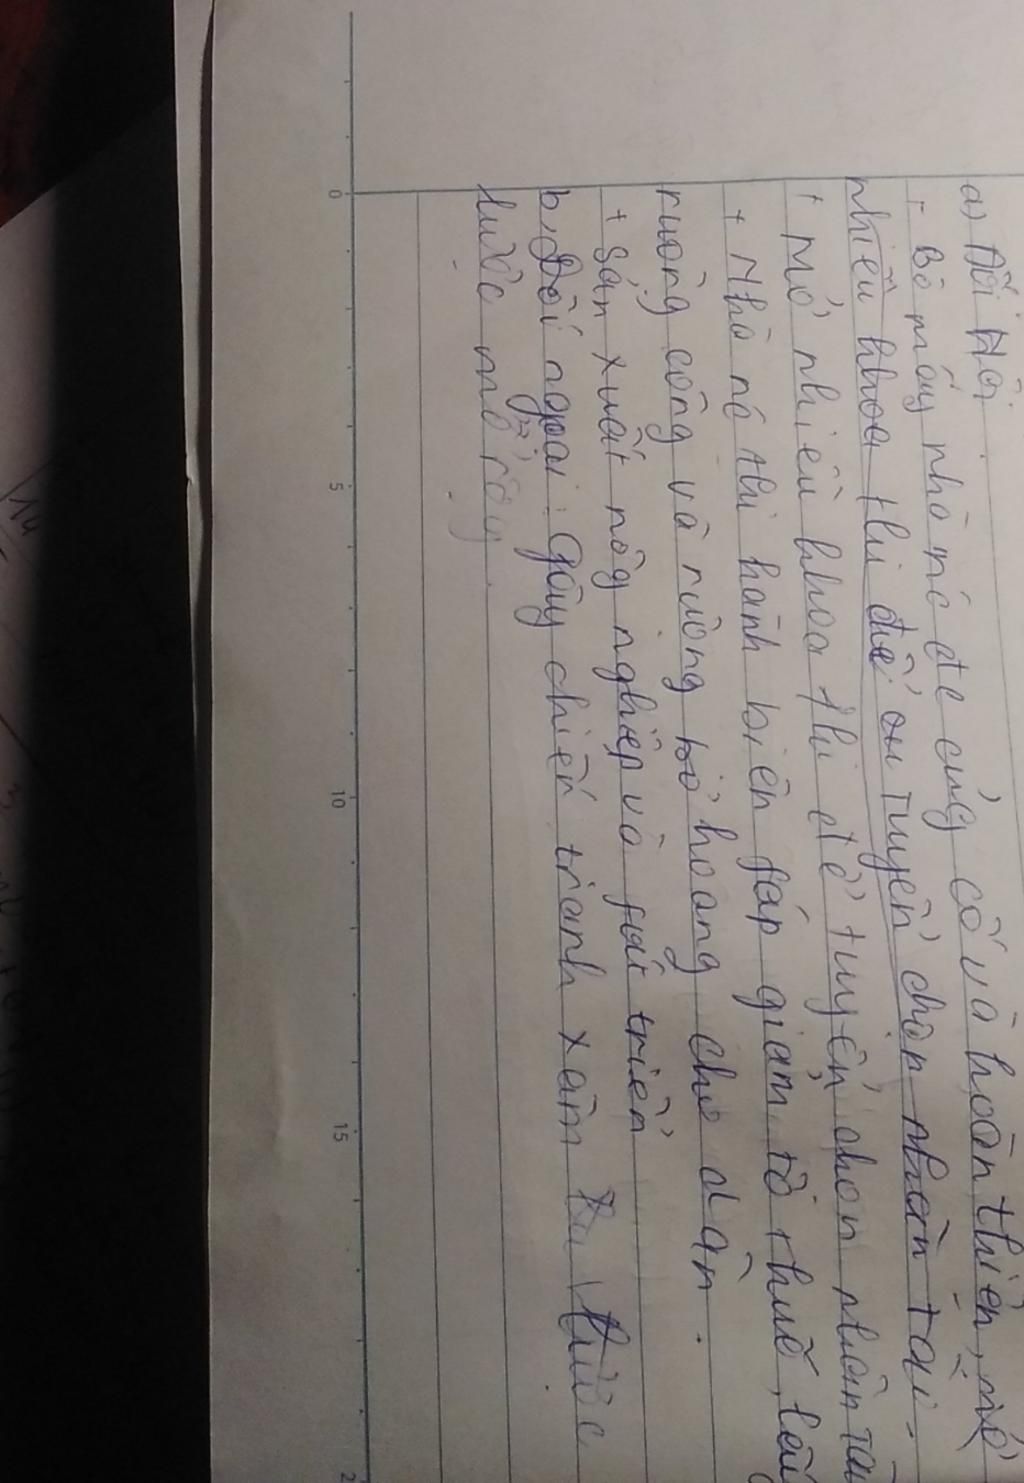 a) Đối Nội
- Bộ máy nhà nc đc củng cố và hoàn thiện, mở
nhiều khoa thi để tuyển chọn nhân tài.
+ Mở nhiều khoa thi để tuyển chọn nhân tài
+ Nhà nc thi hành biện fáp giảm tô thuế, lấy
ruộng công và ruộng bỏ hoang cho dân.
+ Sản xuất nôg nghiệp và fát triển
b, Đối ngoại: gây chiến tranh xâm lược
mở rộg
0
5
10
15
2